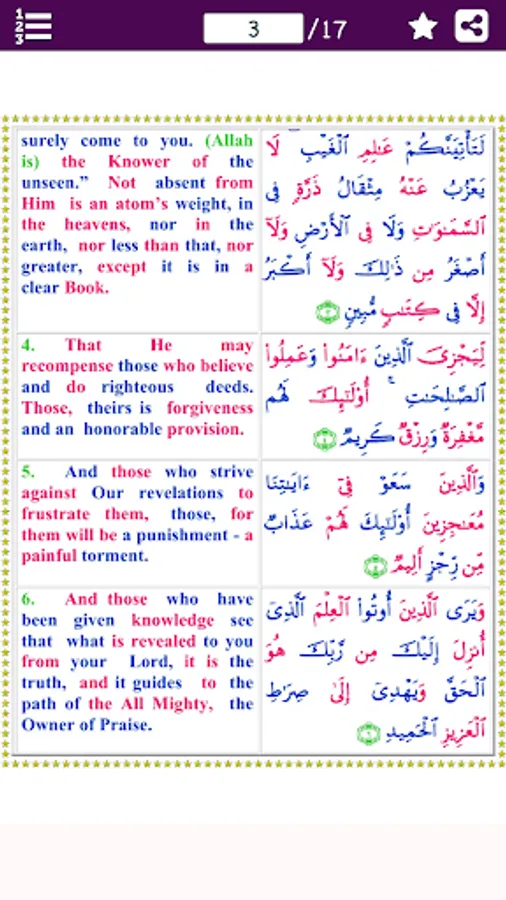 1
2
3
3
/17
surely come to you. (Allah
is) the Knower of the
unseen.” Not absent from
Him is an atom’s weight, in
the heavens, nor in the
earth, nor less than that, nor
greater, except it is in a
clear Book.
لَتَأْتِيَنَّكُمْ عَٰلِمِ ٱلْغَيْبِ لَا
يَعْزُبُ عَنْهُ مِثْقَالُ ذَرَّةٍ فِى
ٱلسَّمَٰوَٰتِ وَلَا فِى ٱلْأَرْضِ وَلَآ
أَصْغَرُ مِن ذَٰلِكَ وَلَآ أَكْبَرُ
إِلَّا فِى كِتَٰبٍ مُّبِينٍ ٣
4. That He may
recompense those who believe
and do righteous deeds.
Those, theirs is forgiveness
and an honorable provision.
لِّيَجْزِىَ ٱلَّذِينَ ءَامَنُوا۟ وَعَمِلُوا۟
ٱلصَّٰلِحَٰتِ ۚ أُو۟لَٰٓئِكَ لَهُم
مَّغْفِرَةٌ وَرِزْقٌ كَرِيمٌ ٤
5. And those who strive
against Our revelations to
frustrate them, those, for
them will be a punishment - a
painful torment.
وَٱلَّذِينَ سَعَوْ فِىٓ ءَايَٰتِنَا
مُعَٰجِزِينَ أُو۟لَٰٓئِكَ لَهُمْ عَذَابٌ
مِّن رِّجْزٍ أَلِيمٌ ٥
6. And those who have
been given knowledge see
that what is revealed to you
from your Lord, it is the
truth, and it guides to the
path of the All Mighty, the
Owner of Praise.
وَيَرَى ٱلَّذِينَ أُوتُوا۟ ٱلْعِلْمَ ٱلَّذِىٓ
أُنزِلَ إِلَيْكَ مِن رَّبِّكَ هُوَ
ٱلْحَقَّ وَيَهْدِىٓ إِلَىٰ صِرَٰطِ
ٱلْعَزِيزِ ٱلْحَمِيدِ ٦